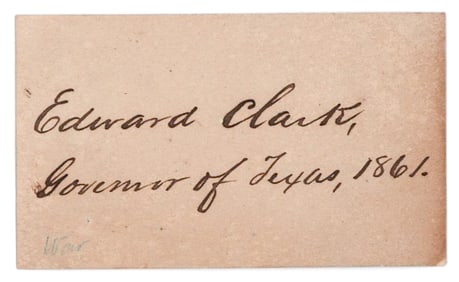 Edward Clark,
Governor of Texas, 1861.